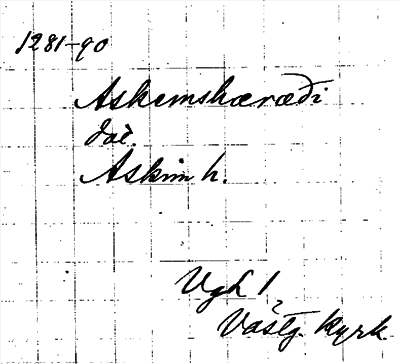 1281-90
Askemshæræði
dat.
Askim h.
VgL 1,
Västg. kyrk.